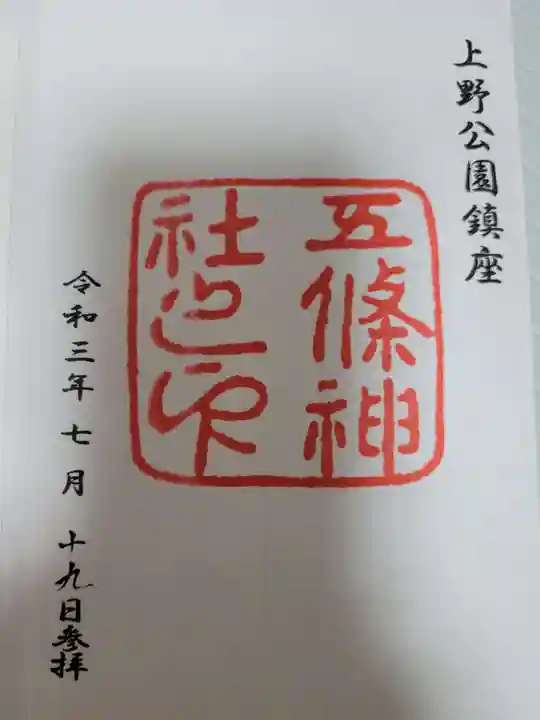 上野公園鎮座
五條神
社之印
令和三年七月十九日参拝